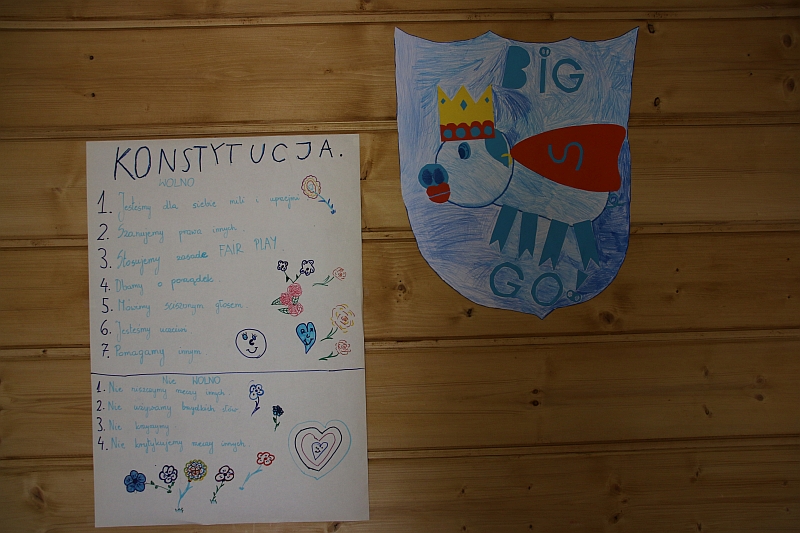 KONSTYTUCJA.
WOLNO
1. Jesteśmy dla siebie mili i uprzejmi
2. Szanujemy prawa innych.
3. Stosujemy zasadę FAIR PLAY.
4. Dbamy o porządek.
5. Mówimy ściszonym głosem.
6. Jesteśmy
7. Pomagamy innym.
Nie WOLNO
1. Nie niszczymy rzeczy innych.
2. Nie używamy brzydkich słów
3. Nie
4. Nie krytykujemy rzeczy innych.
BIG
S
GO!